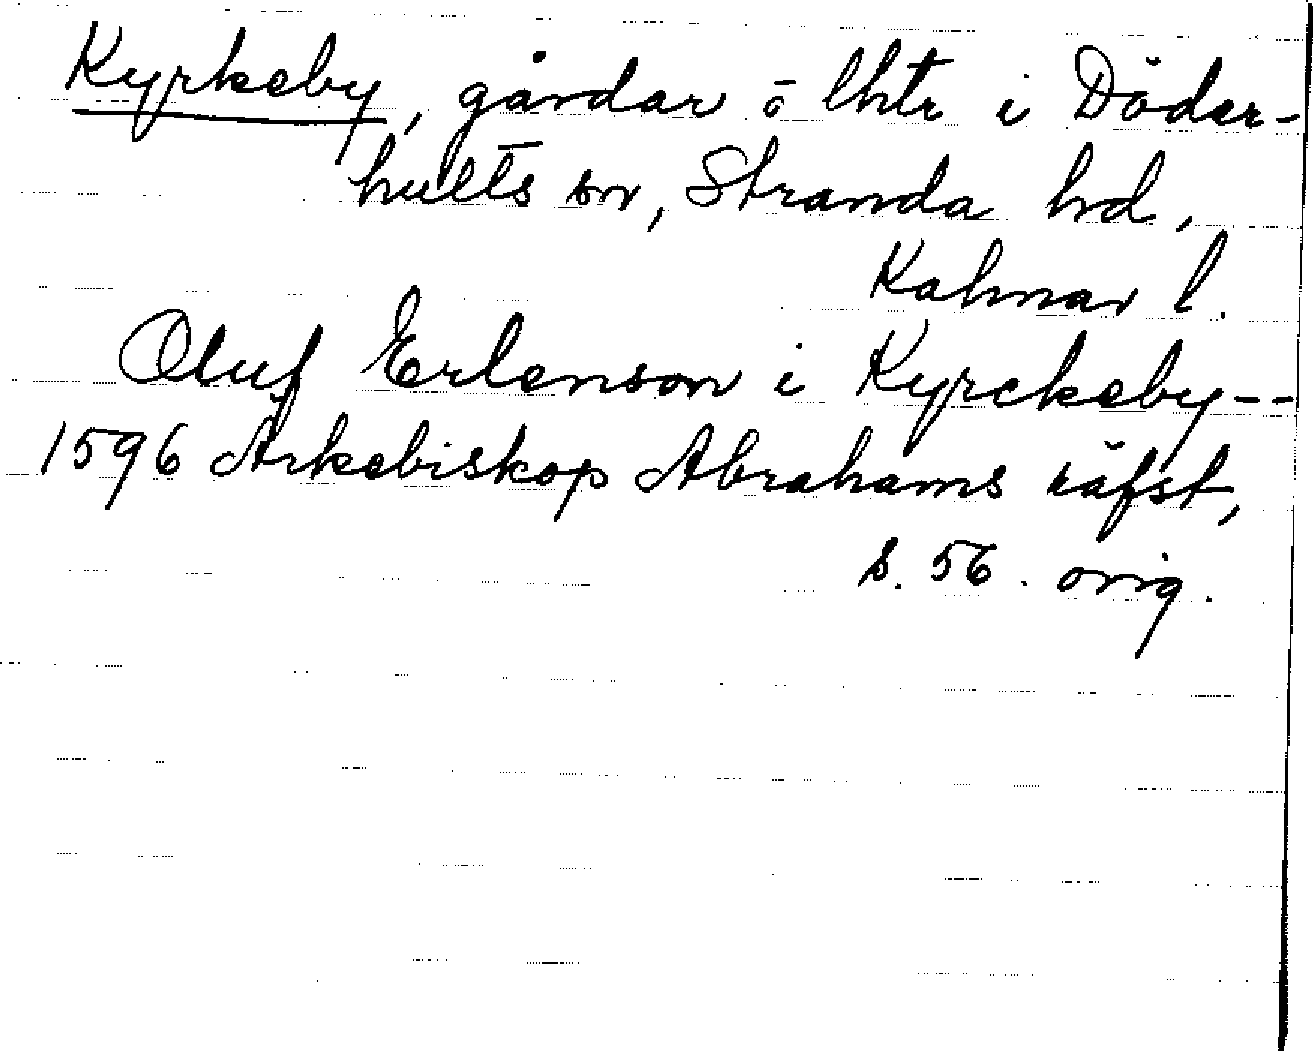 Kyrkeby, gårdar o lhtr i Döder-
hults sn, Stranda hd,
Kalmar l.
Oluf Erlenson i Kyrckeby--
1596 Ärkebiskop Abrahams räfst,
s. 56. orig.